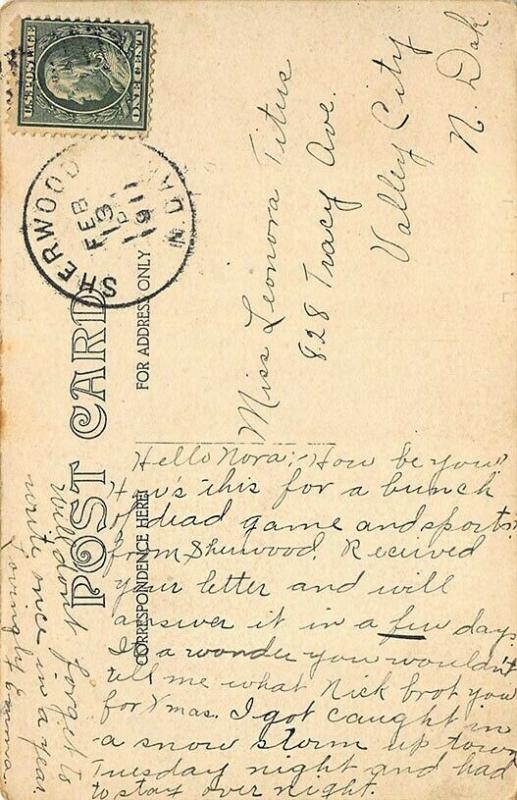 U.S. POSTAGE
ONE CENT
SHERWOOD
N. DAK.
FEB
13
POST CARD
FOR ADDRESS ONLY
CORRESPONDENCE HERE
Miss Leonora Titus
828 Tracy Ave.
Valley City
N. Dak.
Hello Nora: How be you?
How's this for a bunch
of dead game and sports
from Sherwood. Received
your letter and will
answer it in a few days
It's a wonder you wouldn't
tell me what Nick brot you
for Xmas. I got caught in
a snow storm up town
Tuesday night and had
to stay over night.
Well don't forget to
write once in a year
Lovingly Emma.